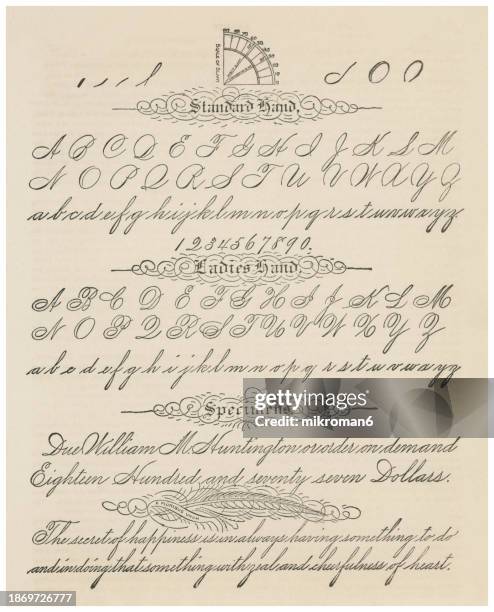 SCALE OF SLANT
Standard Hand.
A B C D E F G H I J K L M
N O P Q R S T U V W X Y Z
a b c d e f g h i j k l m n o p q r s t u v w x y z
1 2 3 4 5 6 7 8 9 0.
Ladies Hand.
A B C D E F G H I J K L M
N O P Q R S T U V W X Y Z
a b c d e f g h i j k l m n o p q r s t u v w x y z
gettyimages
Credit: mikroman6
Specimens.
Due William M. Huntington or order on demand
Eighteen Hundred and seventy seven Dollars.
The secret of happiness is in always having something to do
and in doing that something with zeal and cheerfulness of heart.
1869726777